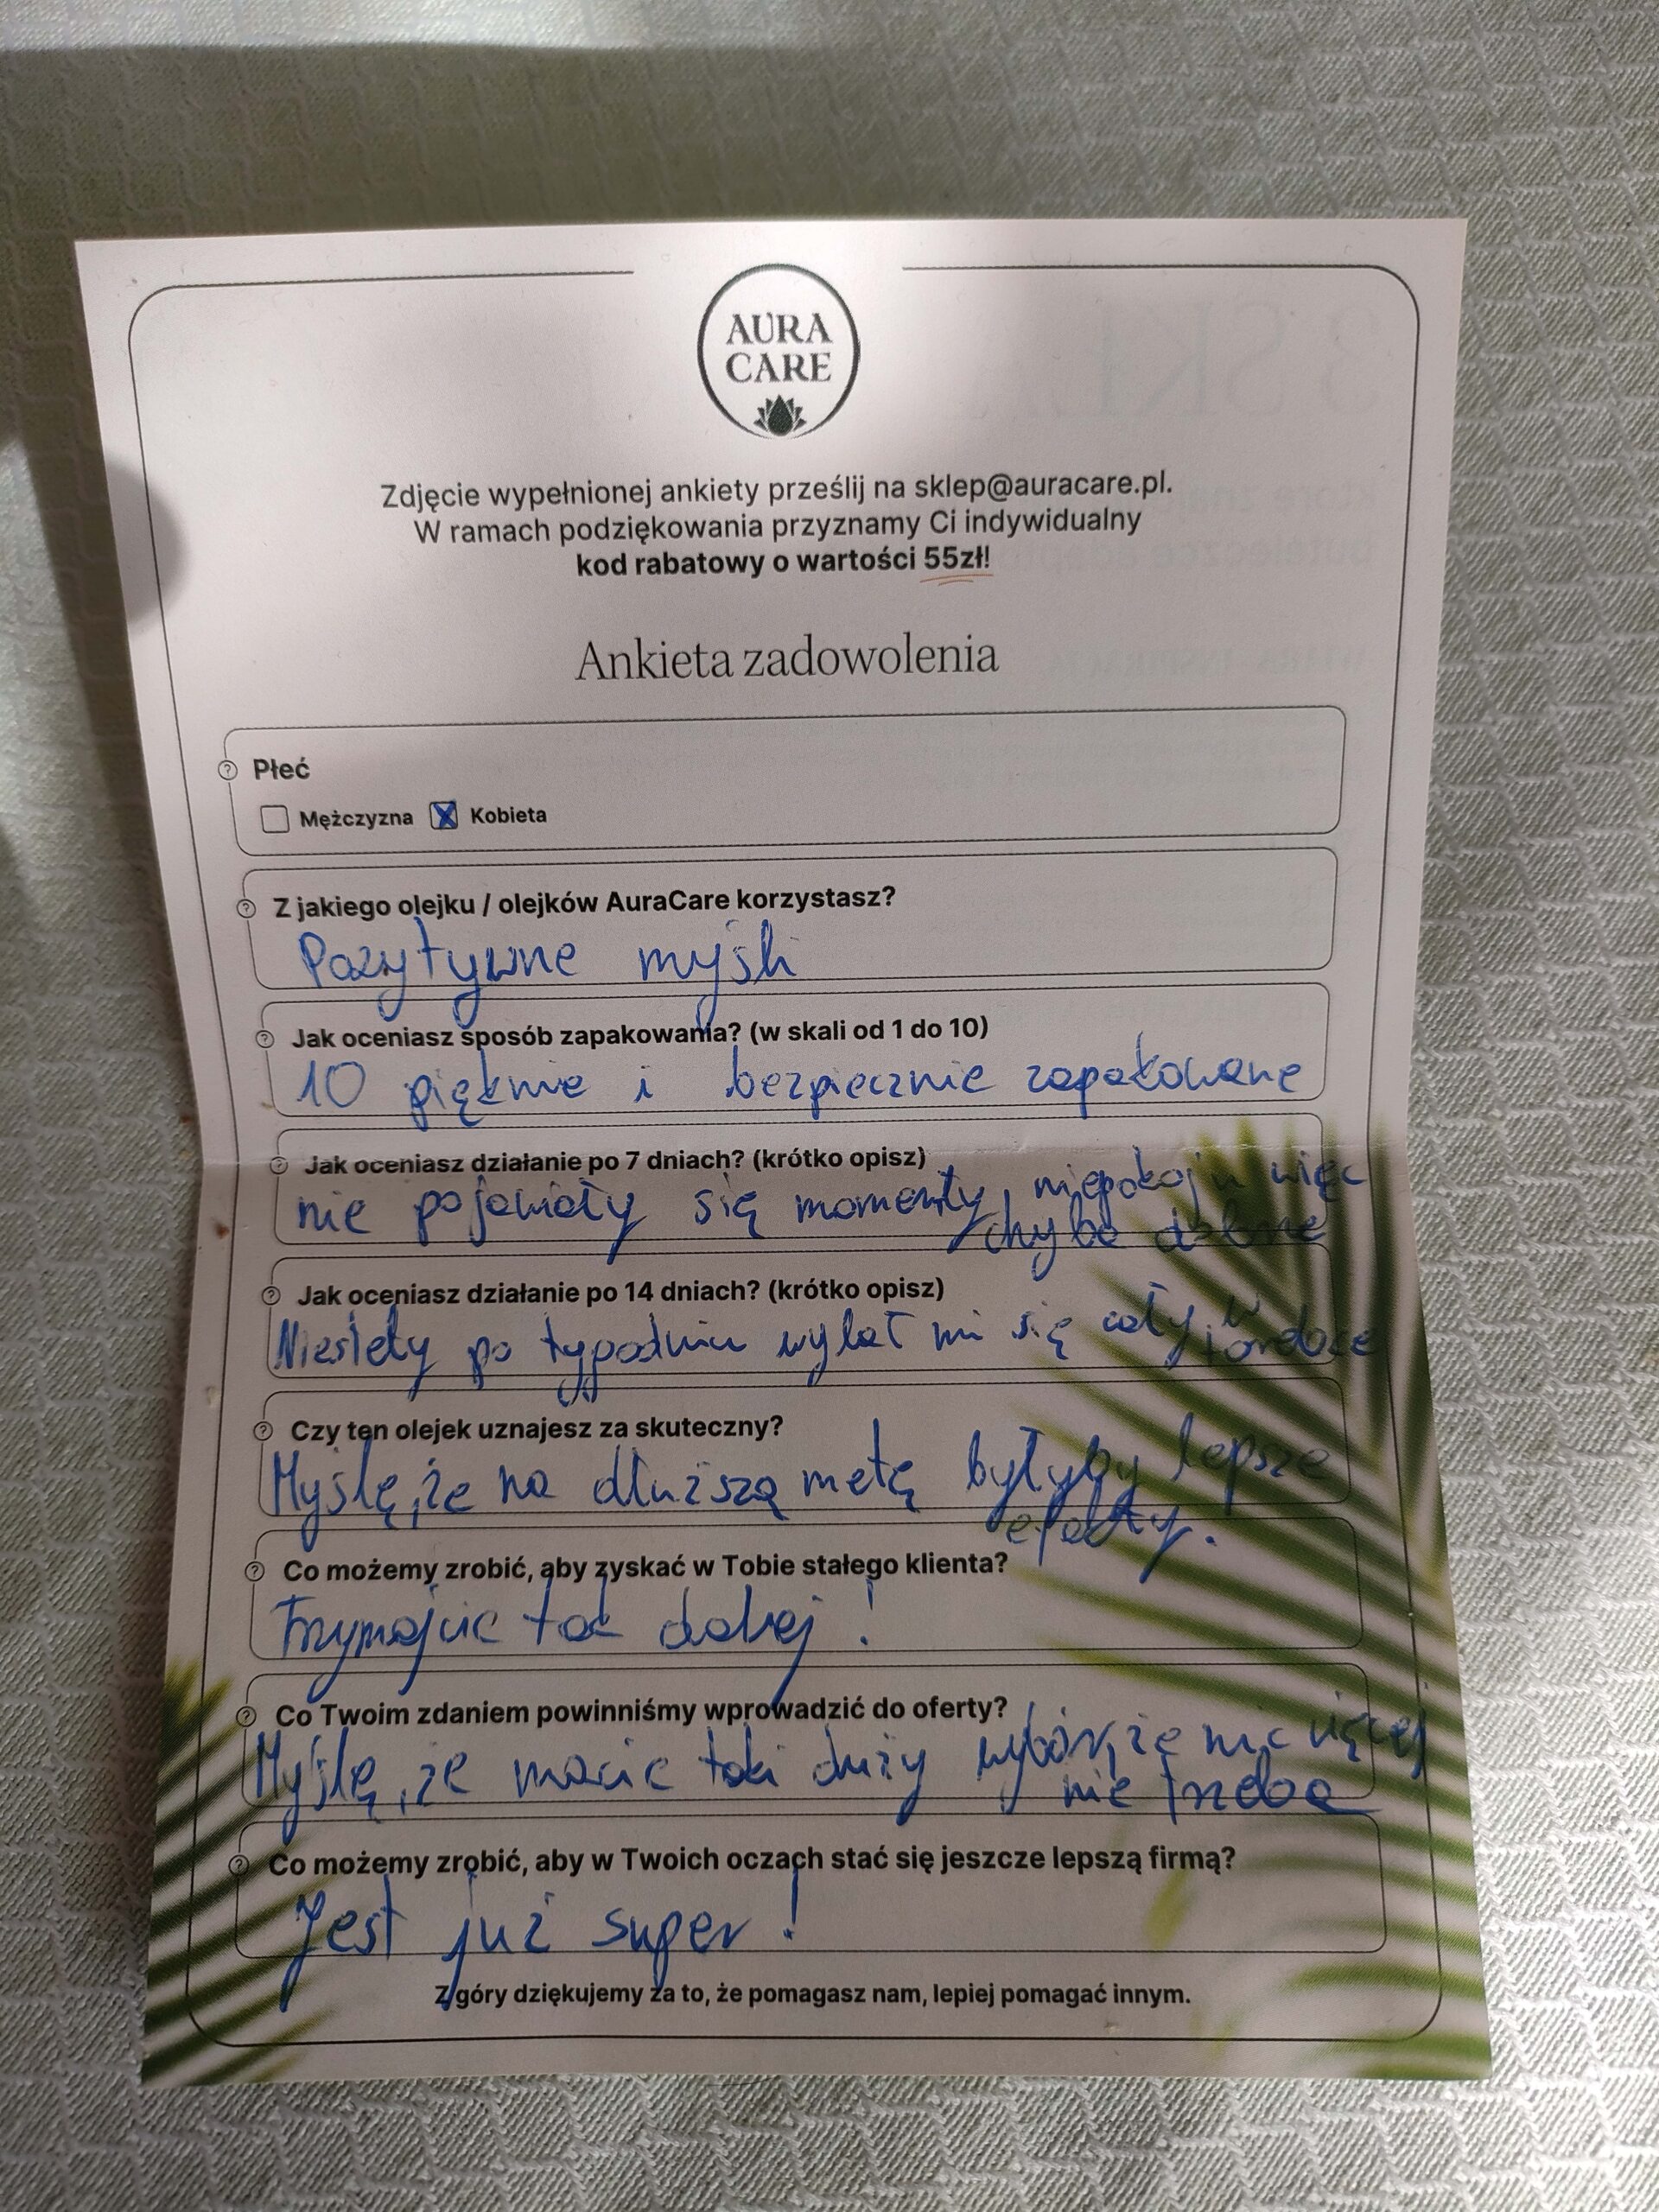 AURA
CARE
Zdjęcie wypełnionej ankiety prześlij na sklep@auracare.pl.
W ramach podziękowania przyznamy Ci indywidualny
kod rabatowy o wartości 55zł!
Ankieta zadowolenia
Płeć
Mężczyzna X Kobieta
Z jakiego olejku / olejków AuraCare korzystasz?
Pozytywne myśli
Jak oceniasz sposób zapakowania? (w skali od 1 do 10)
10 pięknie i bezpiecznie zapakowane
Jak oceniasz działanie po 7 dniach? (krótko opisz)
nie pojawiały się momenty niepokoju więc
chyba dobrze
Jak oceniasz działanie po 14 dniach? (krótko opisz)
Niestety po tygodniu wylał mi się cały w
torebce
Czy ten olejek uznajesz za skuteczny?
Myślę, że na dłuższą metę byłyby lepsze
efekty.
Co możemy zrobić, aby zyskać w Tobie stałego klienta?
Trzymajcie tak dalej!
Co Twoim zdaniem powinniśmy wprowadzić do oferty?
Myślę, że macie taki duży wybór, że nic więcej
nie trzeba
Co możemy zrobić, aby w Twoich oczach stać się jeszcze lepszą firmą?
Jest już super!
Z góry dziękujemy za to, że pomagasz nam, lepiej pomagać innym.